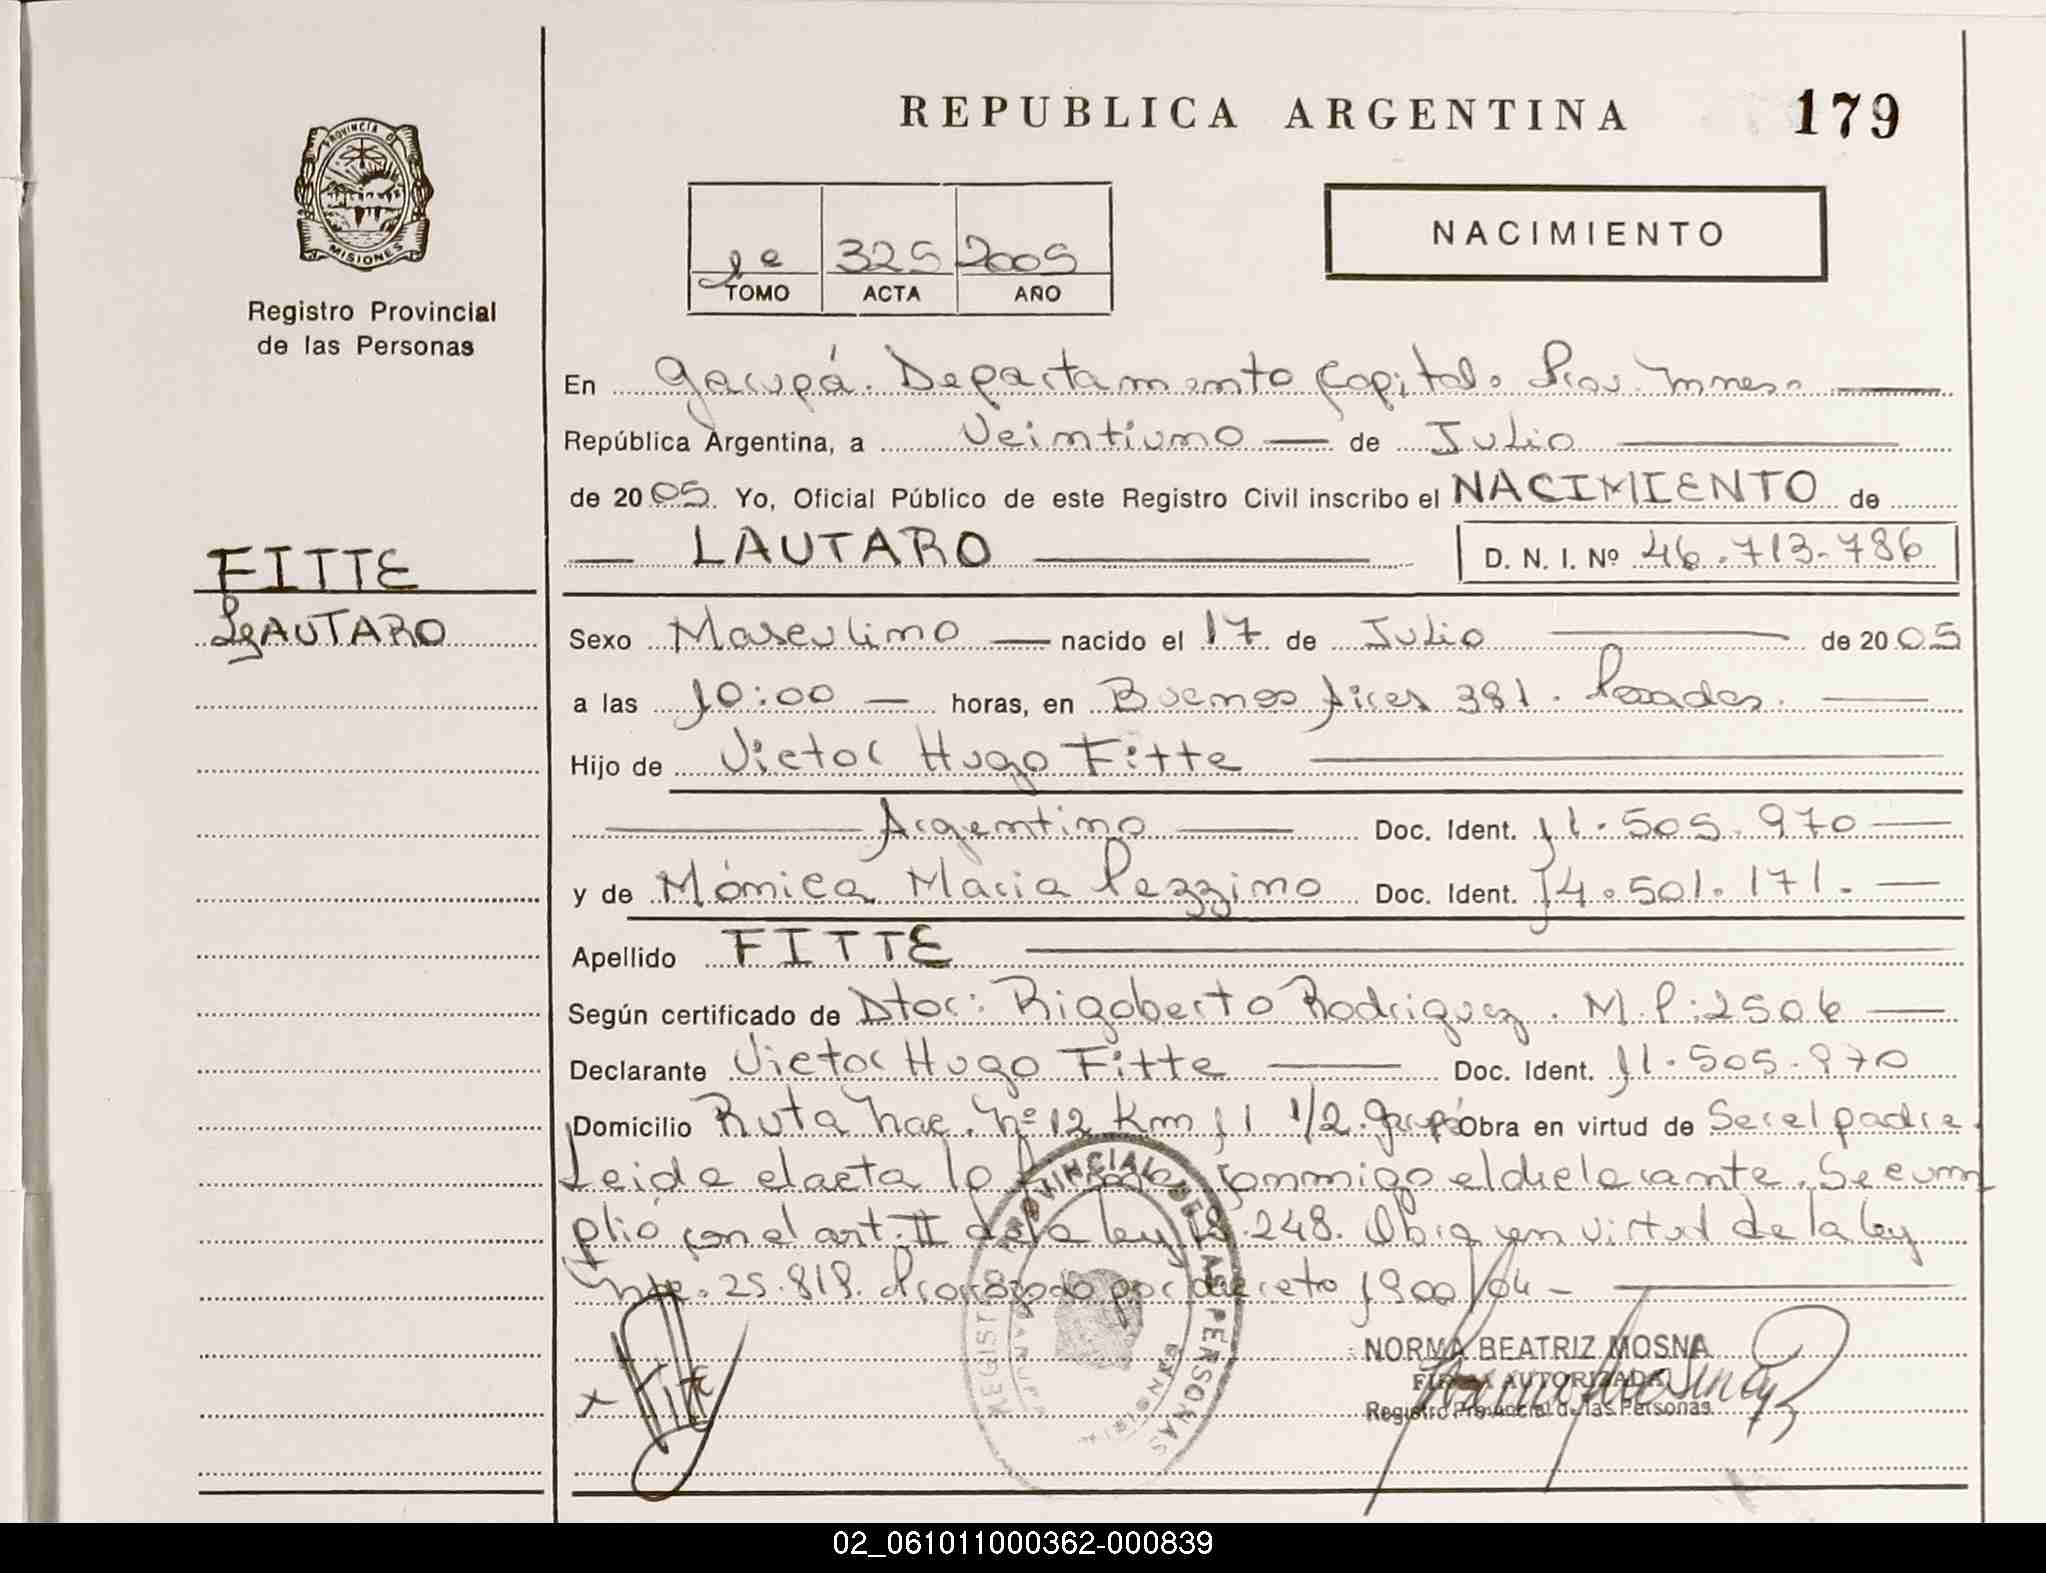 REPUBLICA ARGENTINA
179
PROVINCIA DE
MISIONES
Registro Provincial
de las Personas
325 2005
TOMO ACTA AÑO
NACIMIENTO
En Garupá. Departamento Capital. Prov. Mnes.
República Argentina, a Veintiuno de Julio
de 2005. Yo, Oficial Público de este Registro Civil inscribo el NACIMIENTO de
LAUTARO D. N. I. Nº 46.713.786
FITTE
LAUTARO
Sexo Masculino nacido el 17 de Julio de 2005
a las 10:00 horas, en Buenos Aires 381. Posadas.
Hijo de Victor Hugo Fitte
Argentino Doc. Ident. 11.505.970
y de Mónica Maria Pezzino Doc. Ident. 14.501.171.
Apellido FITTE
Según certificado de Dtor: Rigoberto Rodriguez. M.P:2506
Declarante Victor Hugo Fitte Doc. Ident. 11.505.970
Domicilio Ruta Nac. Nº 12 Km 11 1/2. Garupá Obra en virtud de Ser el padre.
Leida el acta la firma conmigo el declarante. Se cum
plió con el art. II de la ley 18.248. Obra en virtud de la ley
Nº 25.819. Prorrogado por decreto 1900/04 -
REGISTRO PROVINCIAL DE LAS PERSONAS
x Fitte
NORMA BEATRIZ MOSNA
FIRMA AUTORIZADA
Registro Provincial de las Personas
02_061011000362-000839